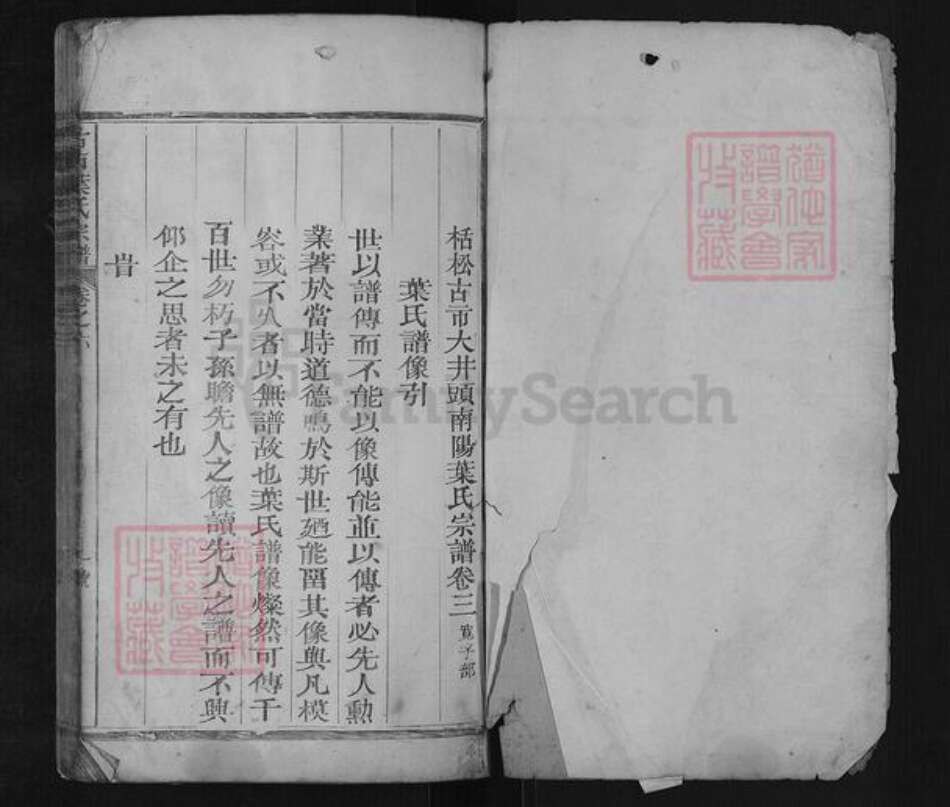 栝松古市大井頭南陽葉氏宗譜卷三 寬字部
葉氏譜像引
世以譜傳而不能以像傳能並以傳者必先人勳
業著於當時道德鳴於斯世廼能畱其像與凡模
咨或不乆者以無譜故也葉氏譜像燦然可傳于
百世勿朽子孫瞻先人之像讀先人之譜而不興
仰企之思者未之有也
旹
古市葉氏宗譜 卷之
FamilySearch
譜學會
收藏
譜學會
收藏